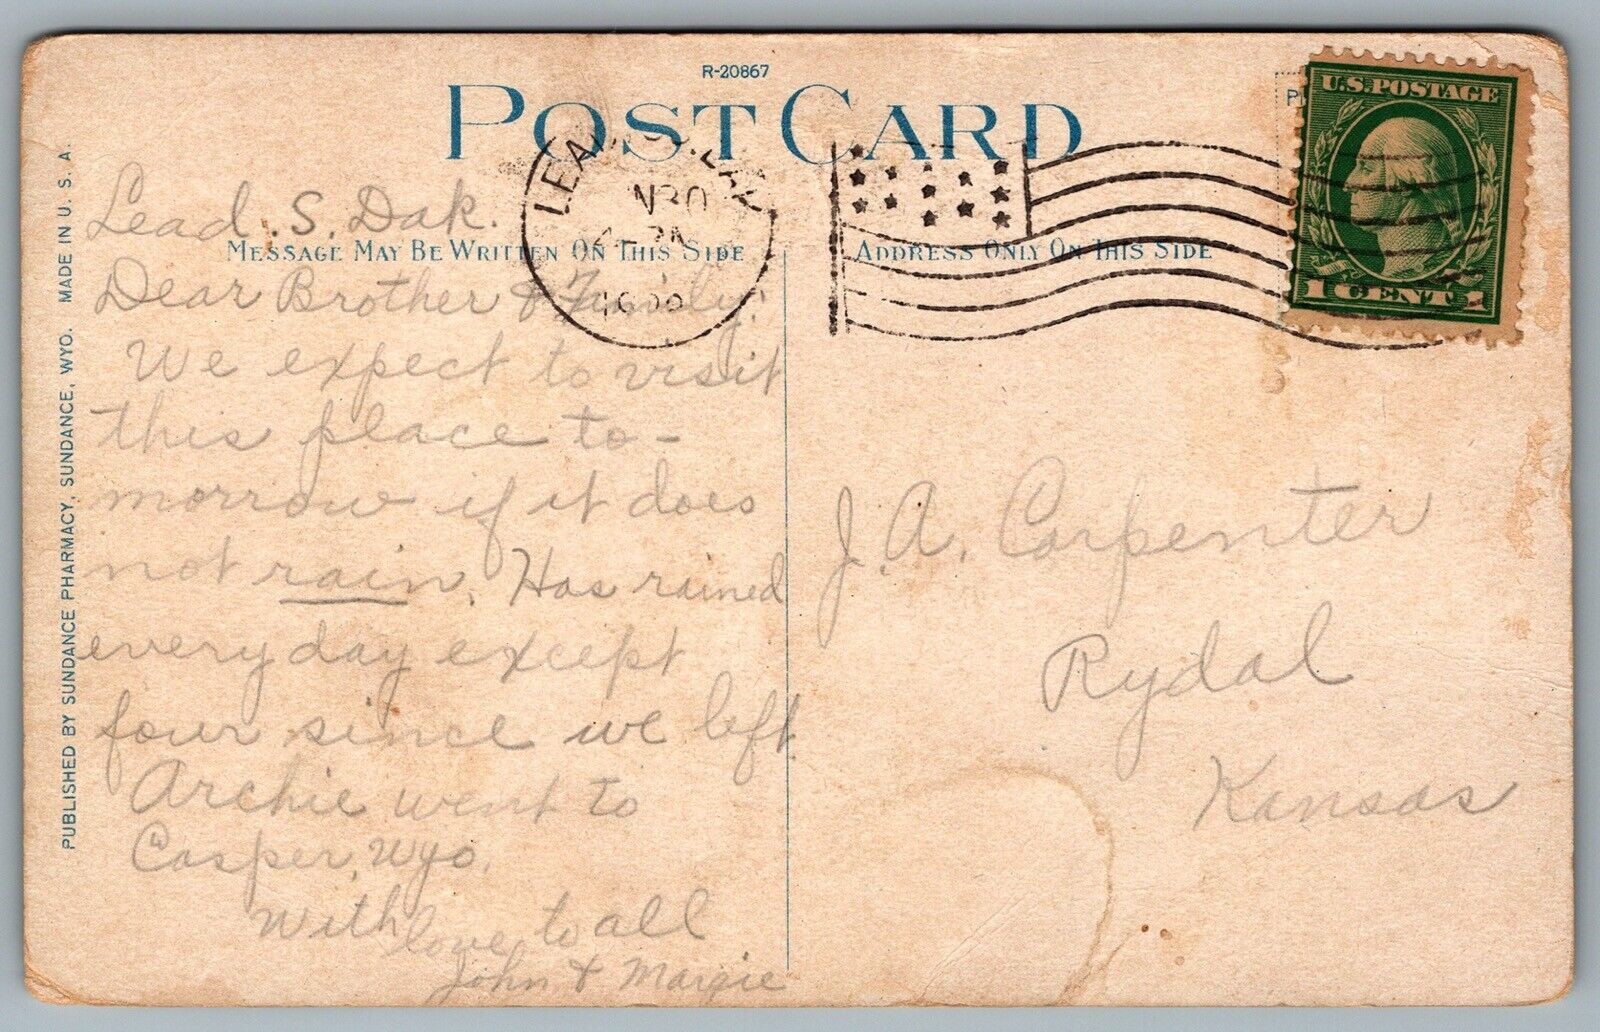 R-20867
POST CARD
U.S. POSTAGE
1 CENT 1
LEAD, S. DAK.
MESSAGE MAY BE WRITTEN ON THIS SIDE
ADDRESS ONLY ON THIS SIDE
PUBLISHED BY SUNDANCE PHARMACY, SUNDANCE, WYO. MADE IN U. S. A.
Lead. S. Dak.
Dear Brother & Family:
We expect to visit
this place to-
morrow if it does
not rain. Has rained
every day except
four since we left.
Archie went to
Casper, Wyo.
With love to all
John & Margie
J. A. Carpenter
Rydal
Kansas